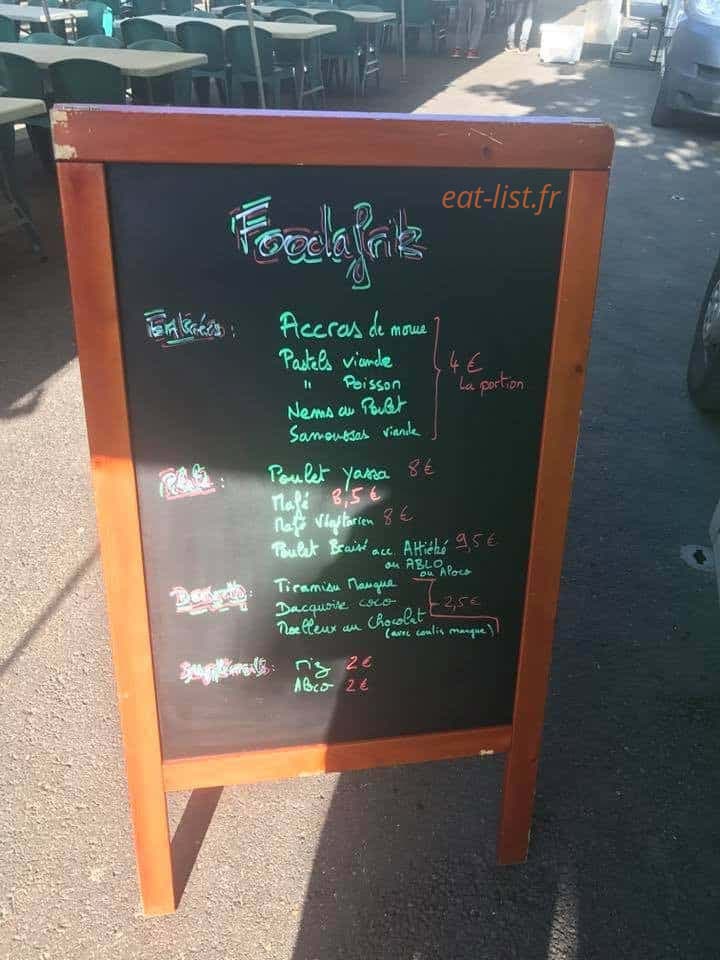 eat-list.fr
Foodafrik
Entrées : Accras de morue
Pastels viande
" Poisson
4 €
La portion
Nems au Poulet
Samoussas viande
Plats : Poulet Yassa 8 €
Mafé 8,5 €
Mafé Végétarien 8 €
Poulet Braisé acc. Attiéké 9,5 €
ou ABLO
ou Aloco
Desserts : Tiramisu Mangue
Dacquoise coco 2,5 €
Moelleux au Chocolat
(avec coulis mangue)
Suppléments : riz 2 €
Aloco 2 €